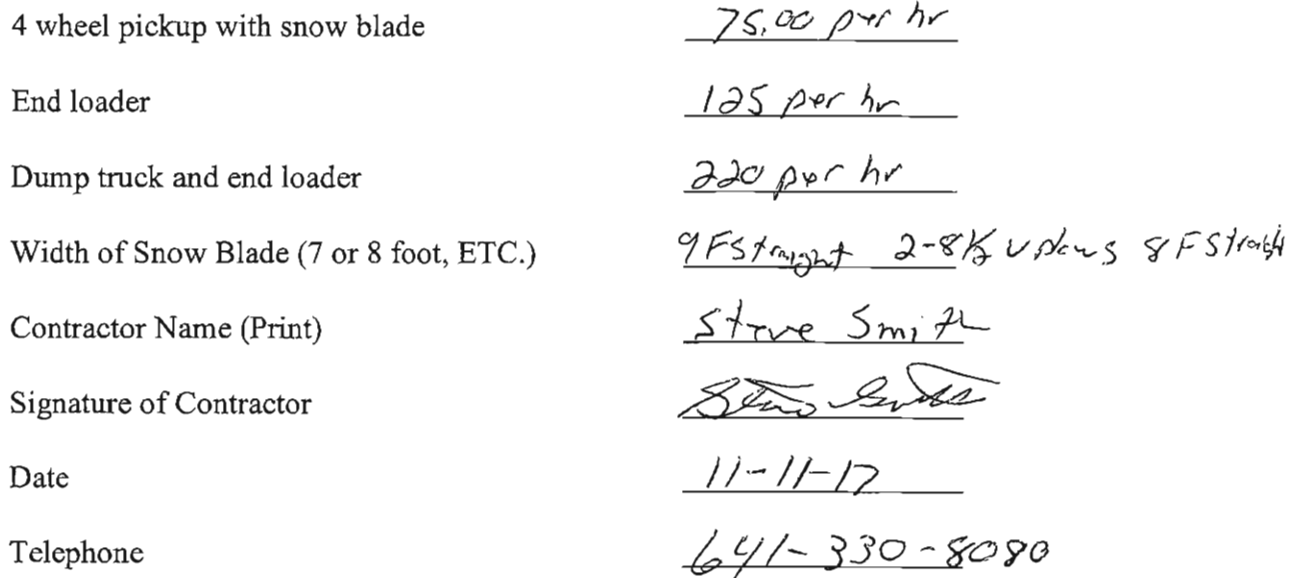 4 wheel pickup with snow blade 75.00 per hr
End loader 125 per hr
Dump truck and end loader 220 per hr
Width of Snow Blade (7 or 8 foot, ETC.) 9F Straight 2-8½ V plows 8F Straight
Contractor Name (Print) Steve Smith
Signature of Contractor Steve Smith
Date 11-11-17
Telephone 641-330-8080